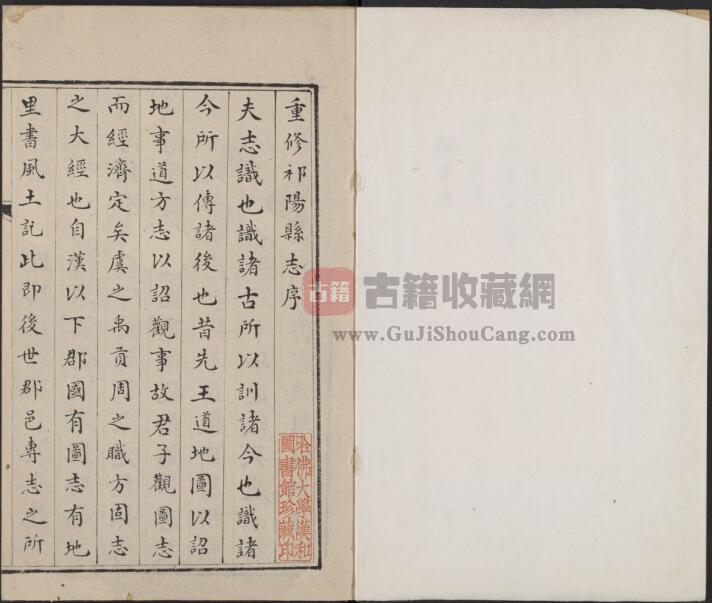 重修祁陽縣志序
夫志識也識諸古所以訓諸今也識諸
今所以傳諸後也昔先王道地圖以詔
地事道方志以詔觀事故君子觀圖志
而經濟定矣虞之禹貢周之職方固志
之大經也自漢以下郡國有圖志有地
里書風土記此即後世郡邑專志之所
哈佛大學漢和
圖書館珍藏印
古籍
古籍收藏網
www.GuJiShouCang.com